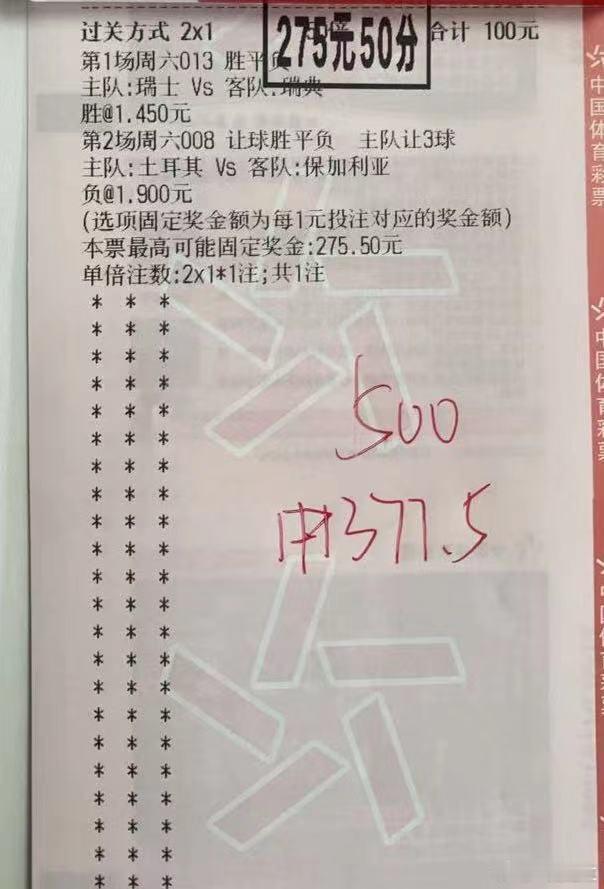 过关方式 2x1 合计 100元
275元50分
第1场周六013 胜平负
主队:瑞士 Vs 客队:瑞典
胜@1.450元
第2场周六008 让球胜平负 主队让3球
主队:土耳其 Vs 客队:保加利亚
负@1.900元
(选项固定奖金额为每1元投注对应的奖金额)
本票最高可能固定奖金:275.50元
单倍注数:2x1*1注;共1注
* * *
* * *
* * *
* * *
* * *
* * *
* * *
* * *
* * *
* * *
* * *
* * *
* * *
* * *
* * *
* * *
* * *
* * *
* * *
* * *
* * *
* * *
500
中377.5
中国体育彩票
中国体育彩票
中国体育彩票